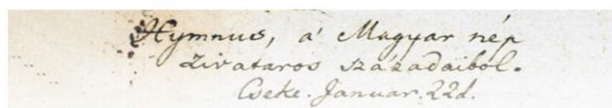 Hymnus, a' Magyar nép
zivataros századaiból.
Cseke. Január. 22d.